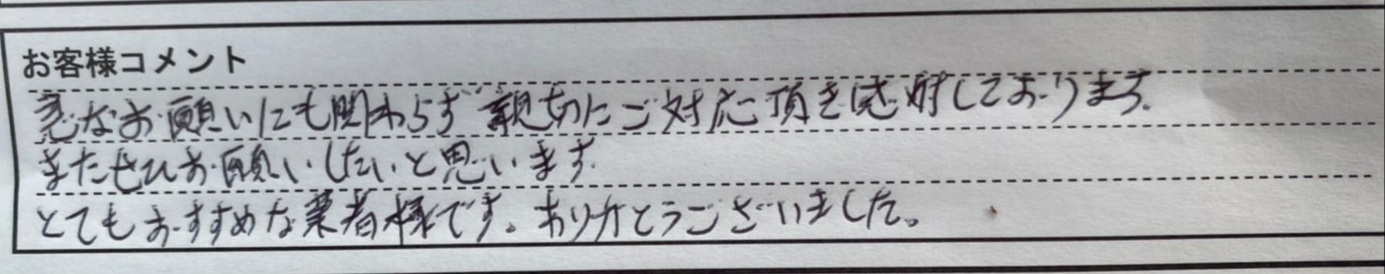 お客様コメント
急なお願いにも関わらず親切にご対応頂き感謝しております。
またぜひお願いしたいと思います。
とてもおすすめな業者様です。ありがとうございました。